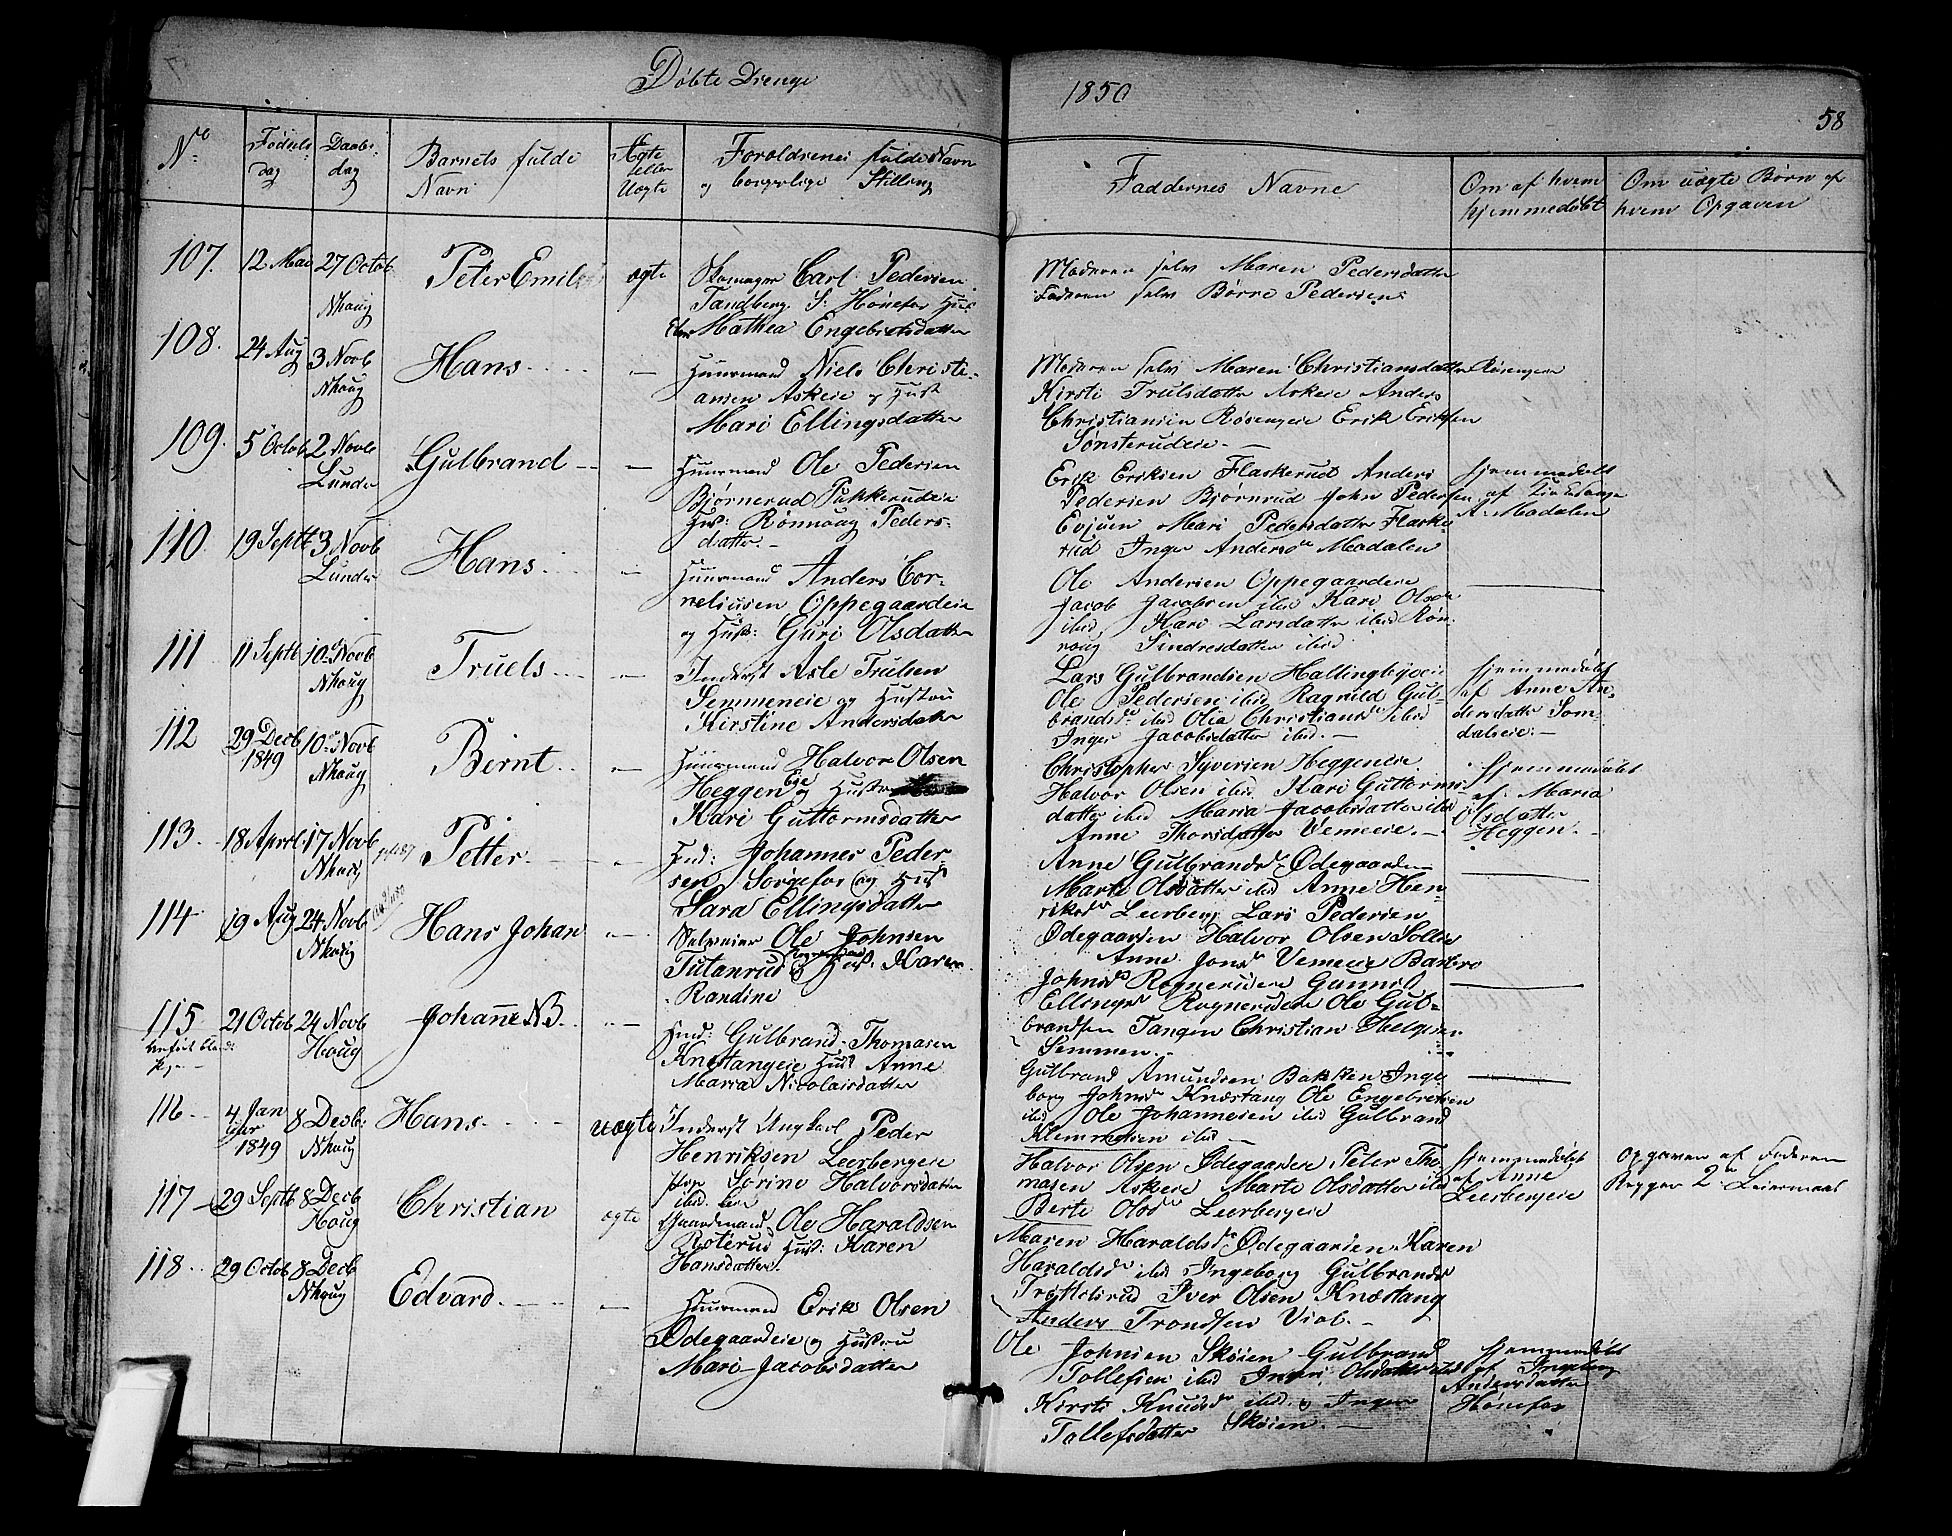 Døbte Drenge
1850
58
No
Fødsels-
dag
Daabs-
dag
Barnets fulde
Navn
Ægte
eller
Uægte
Forældrenes fulde Navn
og borgerlige Stilling
Faddernes Navne
Om af hvem
hjemmedøbt
Om uægte Børn af
hvem Opgaven
107.
12 Mai
27 Octob
Nhoug
Peter Emil
ægte
Skomager Carl Pedersen
Tandberg S: Hønefos Hus
Mathea Engebretsdatter
Moderen selv Maren Pedersdatter
Faderen selv Børre Pedersen
108.
24 Aug
3 Novb
Nhoug
Hans
Huusmand Niels Christi-
ansen Askeie og Hust
Mari Ellingsdatter
Moderen selv Maren Christiansdatter Røsengeie
Kirsti Trulsdatter Askeie Anders
Christiansen Røsengeie Erik Eriksen
Sønsterudeie
109.
5 Octob
2 Novb
Lunder
Gulbrand
Huusmand Ole Pedersen
Bjørnerud Pukkerudeie
Hus: Rønnoug Peders-
datter
Erik Eriksen Flaskerud Anders
Pedersen Bjørnrud John Pedersen
Evjuen Mari Pedersdatter Flaske-
rud Inger Andersdr Madalen
hjemmedøbt
A: Madalen
110.
19 Septb
3 Novb
Lunder
Hans
Huusmand Anders Cor-
neliusen Oppegaardeie
og Hust: Guri Olsdatter
Ole Andersen Oppegaardeie
Jacob Jacobsen ibid Kari Olsdr
ibid, Kari Larsdatter ibid Røn-
noug Sindresdatter ibid
111
11 Septb
10 Novb
Nhoug
Truels
Inderst Asle Trulsen
Semmeneie og Hustru
Kirstine Andersdatter
Lars Gulbrandsen Hallingbyeie
Ole Pedersen ibid Ragnild Gul-
brandsdr ibid Olia Christiansdr ibid
Inger Jacobsdatter ibid.
hjemmedøbt
af Anne An-
dersdatter Som-
dalseie
112
29 Decb
1849
10 Novb
Nhoug
Bernt
Huusmand Halvor Olsen
Heggen eie og Hustr
Kari Guttormsdatter
Christopher Syversen Heggeneie
Halvor Olsen ibid Kari Guttorms-
datter ibid Maria Jacobsdatter ibid
Anne Thorsdatter Vemeeie.
hjemmedøbt
af: Maria
Olsdatter
Heggen.
113.
18 April
17 Novb
Nhoug
Petter
Hus: Johannes Peder-
sen Sørgefos og Hust
Sara Ellingsdatter
Anne Gulbrandsdr Ødegaarden
Marte Olsdatter ibid Anne Hen-
riksdr Leerberg Lars Pedersen
Ødegaarden Halvor Olsen Sollie
114
19 Aug
24 Novb
Nhoug
Hans Johan
Selveier Ole Johnsen
Tutanrud og Hust: Karen
Randine
Anne Jonsdr Vemeeie Barbro
Johnsdr Rognerudeie Gunnild
Ellingsdr Rognerudeie Ole Gul-
brandsen Tangen Christian Helgesen
Semmen.
115
21 Octob
24 Novb
Houg
Johanne NB
Hus: Gulbrand Thomasen
Knestangeie Hust Anne
Maria Nicolaisdatter
Gulbrand Amundsen Bakken Inge-
borg Johnsdr Knæstang Ole Engebretsen
ibid Ole Johannesen ibid Gulbrand
Klemmetsen ibid
116
4 Jan
1849
8 Decb:
Nhoug
Hans
uægte
Inderst Ungkarl Peder
Henriksen Leerbergeie
Pige Sørine Halvorsdatter
ibid. eie
Halvor Olsen Ødegaardeie Peter Tho-
masen Askeie Marte Olsdatter ibid
Berte Olsdr Leerbergeie
hjemmedøbt
af Anne
Leerbergeie
Opgaven af Faderen
Begges 2det Leiermaal
117
29 Septb
8 Decb
Houg
Christian
ægte
Gaardmand Ole Haraldsen
Roterud Hust: Karen
Hansdatter
Maren Haraldsdr Ødegaarden Karen
Haraldsdr ibid Ingeborg Gulbrandsdr
Trøttelsrud Iver Olsen Knæstang
Anders Trondsen Viol
118
29 Octob
8 Decb
Nhoug
Edvard
Huusmand Erik Olsen
Ødegaardeie og Hustru
Mari Jacobsdatter
Ole Johnsen Skøien Gulbrand
Tollefsen ibid Ingri Olsdatter ibid
Kirsti Knudsdr ibid. Inger
Tollefsdatter Skøien.
hjemmedøbt
af Ingeborg
Andersdatter
Hønefos